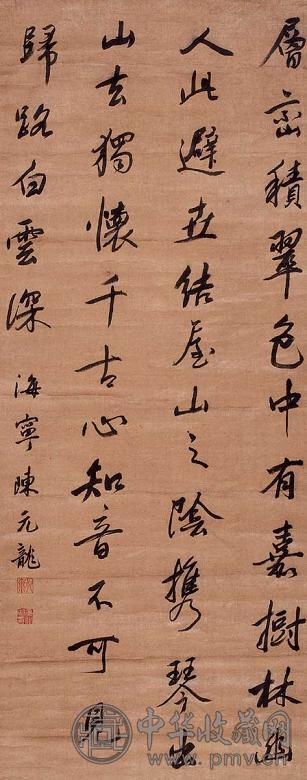 層巒積翠色中有嘉樹林幽
人此避世結屋山之陰攜琴出
山去獨懷千古心知音不可覓
歸路白雲深 海寧陳元龍
中华收藏网
www.pmv.cn